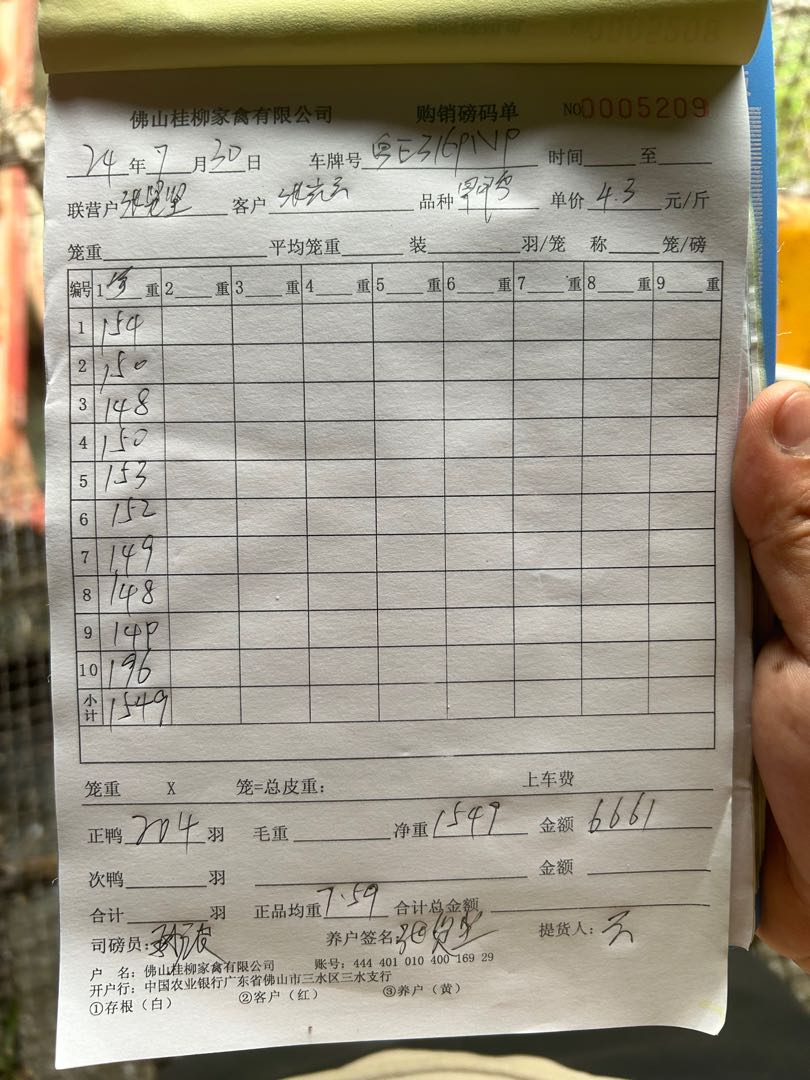 佛山桂柳家禽有限公司 购销磅码单 NO0005209
24年7月30日 车牌号 粤E316PNP 时间 至
联营户 客户 品种 单价 4.3 元/斤
笼重 平均笼重 装 羽/笼 称 笼/磅
编号 1 重 2 重 3 重 4 重 5 重 6 重 7 重 8 重 9 重
1 154
2 150
3 148
4 150
5 153
6 152
7 149
8 148
9 149
10 196
小计 1549
笼重 X 笼=总皮重: 上车费
正鸭 204 羽 毛重 净重 1549 金额 6661
次鸭 羽 金额
合计 羽 正品均重 7.59 合计总金额
司磅员: 养户签名: 提货人: 云
户 名: 佛山桂柳家禽有限公司 账号: 444 401 010 400 169 29
开户行: 中国农业银行广东省佛山市三水区三水支行
①存根(白) ②客户(红) ③养户(黄)